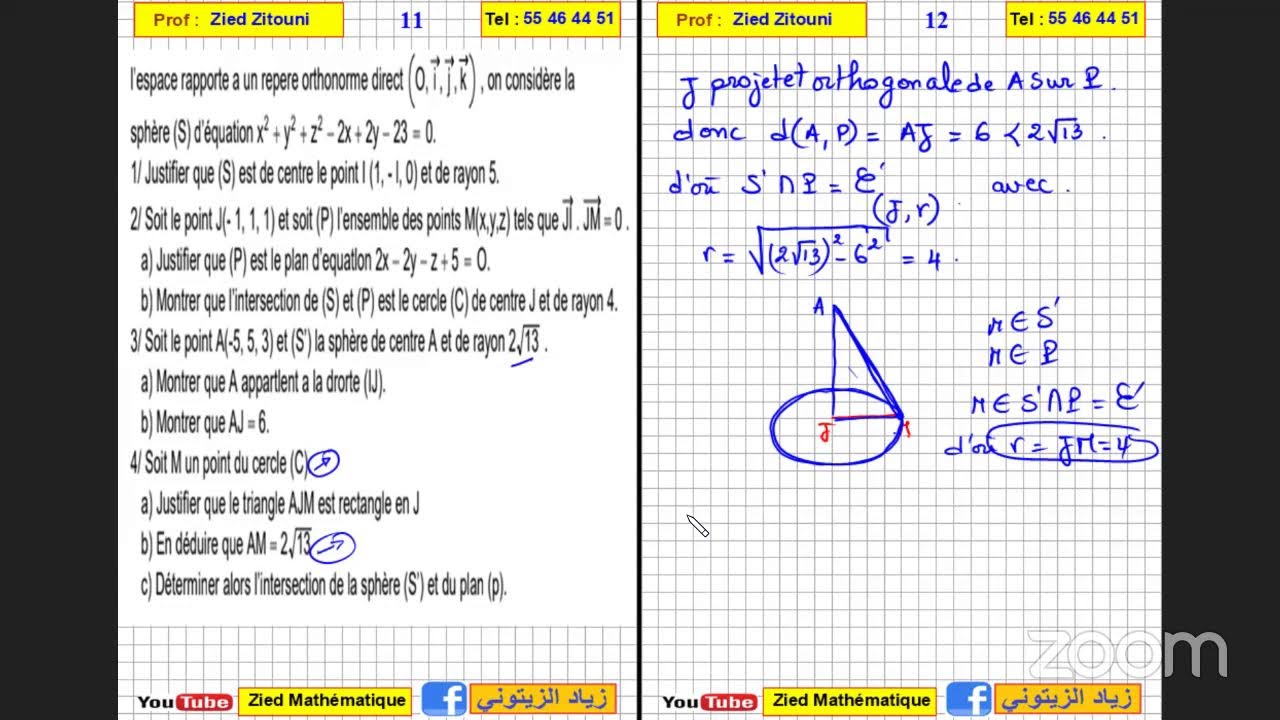 Prof : Zied Zitouni
11
Tel : 55 46 44 51
l'espace rapporte a un repere orthonorme direct (O, i, j, k) , on considère la
sphère (S) d'équation x² + y² + z² – 2x + 2y – 23 = 0.
1/ Justifier que (S) est de centre le point I (1, - I, 0) et de rayon 5.
2/ Soit le point J(- 1, 1, 1) et soit (P) l'ensemble des points M(x,y,z) tels que JI . JM = 0 .
a) Justifier que (P) est le plan d'equation 2x – 2y – z + 5 = O.
b) Montrer que l'intersection de (S) et (P) est le cercle (C) de centre J et de rayon 4.
3/ Soit le point A(-5, 5, 3) et (S') la sphère de centre A et de rayon 2√13 .
a) Montrer que A appartlent a la drorte (IJ).
b) Montrer que AJ = 6.
4/ Soit M un point du cercle (C)
a) Justifier que le triangle AJM est rectangle en J
b) En déduire que AM = 2√13
c) Déterminer alors l'intersection de la sphère (S') et du plan (p).
You Tube Zied Mathématique f زياد الزيتوني
Prof : Zied Zitouni
12
Tel : 55 46 44 51
J projetet orthogonale de A sur P .
donc d(A, P) = AJ = 6 < 2√13 .
d'où S' ∩ P = C' avec .
(J, r)
r = √(2√13)² – 6² = 4 .
A
J
M ∈ S'
M ∈ P
M ∈ S' ∩ P = C'
d'où r = JM = 4
zoom
You Tube Zied Mathématique f زياد الزيتوني